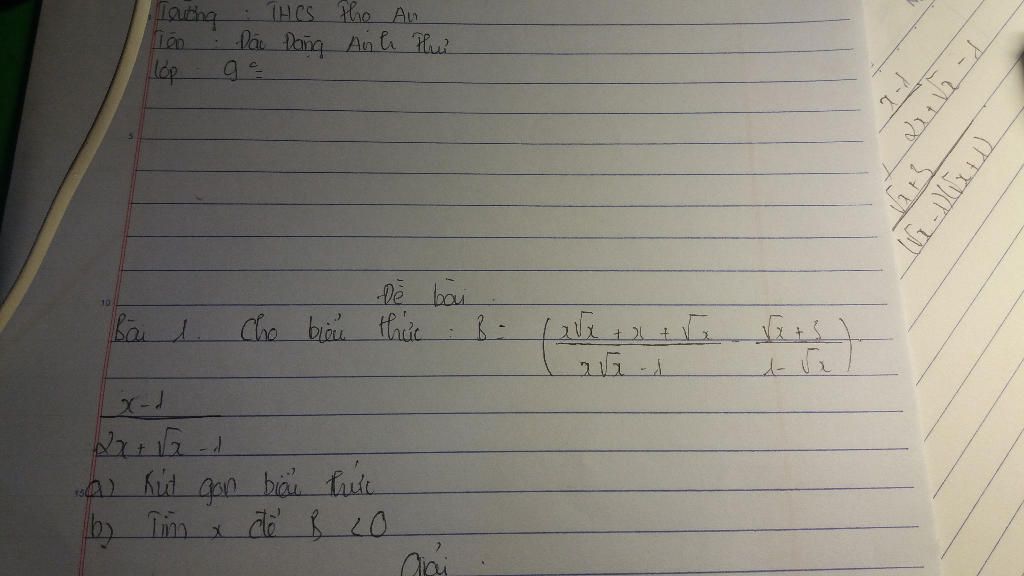 Trường : THCS Thọ An
Tên : Đào Đặng Anh Thư
Lớp : 9c
5
10
Đề bài
Bài 1. Cho biểu thức : B = ( (x√x + x + √x)/(x√x - 1) - (√x + 3)/(1 - √x) ) .
(x-1)/(2x + √x - 1)
15
a) Rút gọn biểu thức
b) Tìm x để B < 0
Giải :
(x-1)/(2x + √x - 1)
(√x + 3)/((√x - 1)(√x + 1))